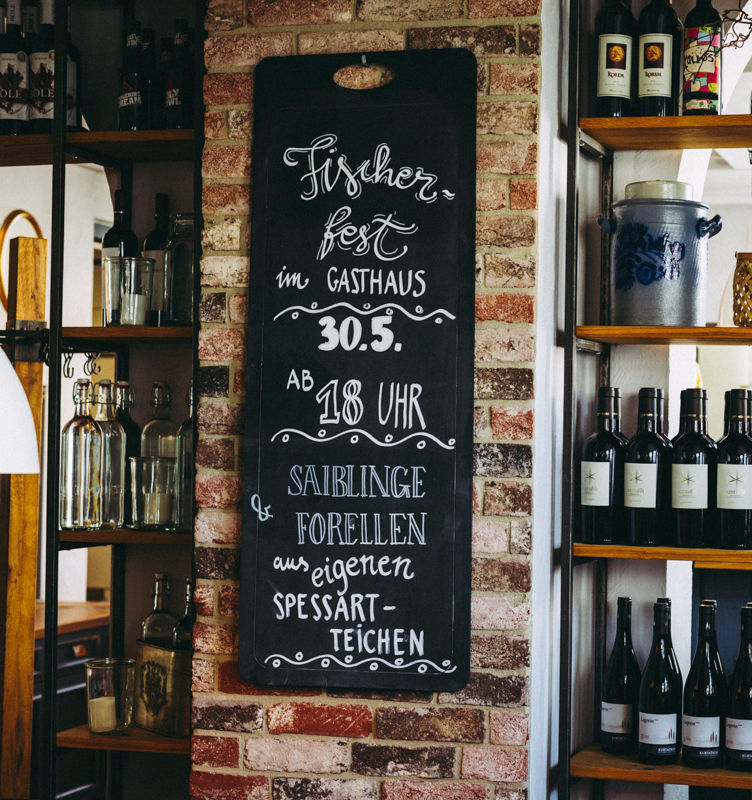 Fischer-
fest
im GASTHAUS
30.5.
AB 18 UHR
SAIBLINGE
& FORELLEN
aus eigenen
SPESSART-
TEICHEN
KOREM
KOREM